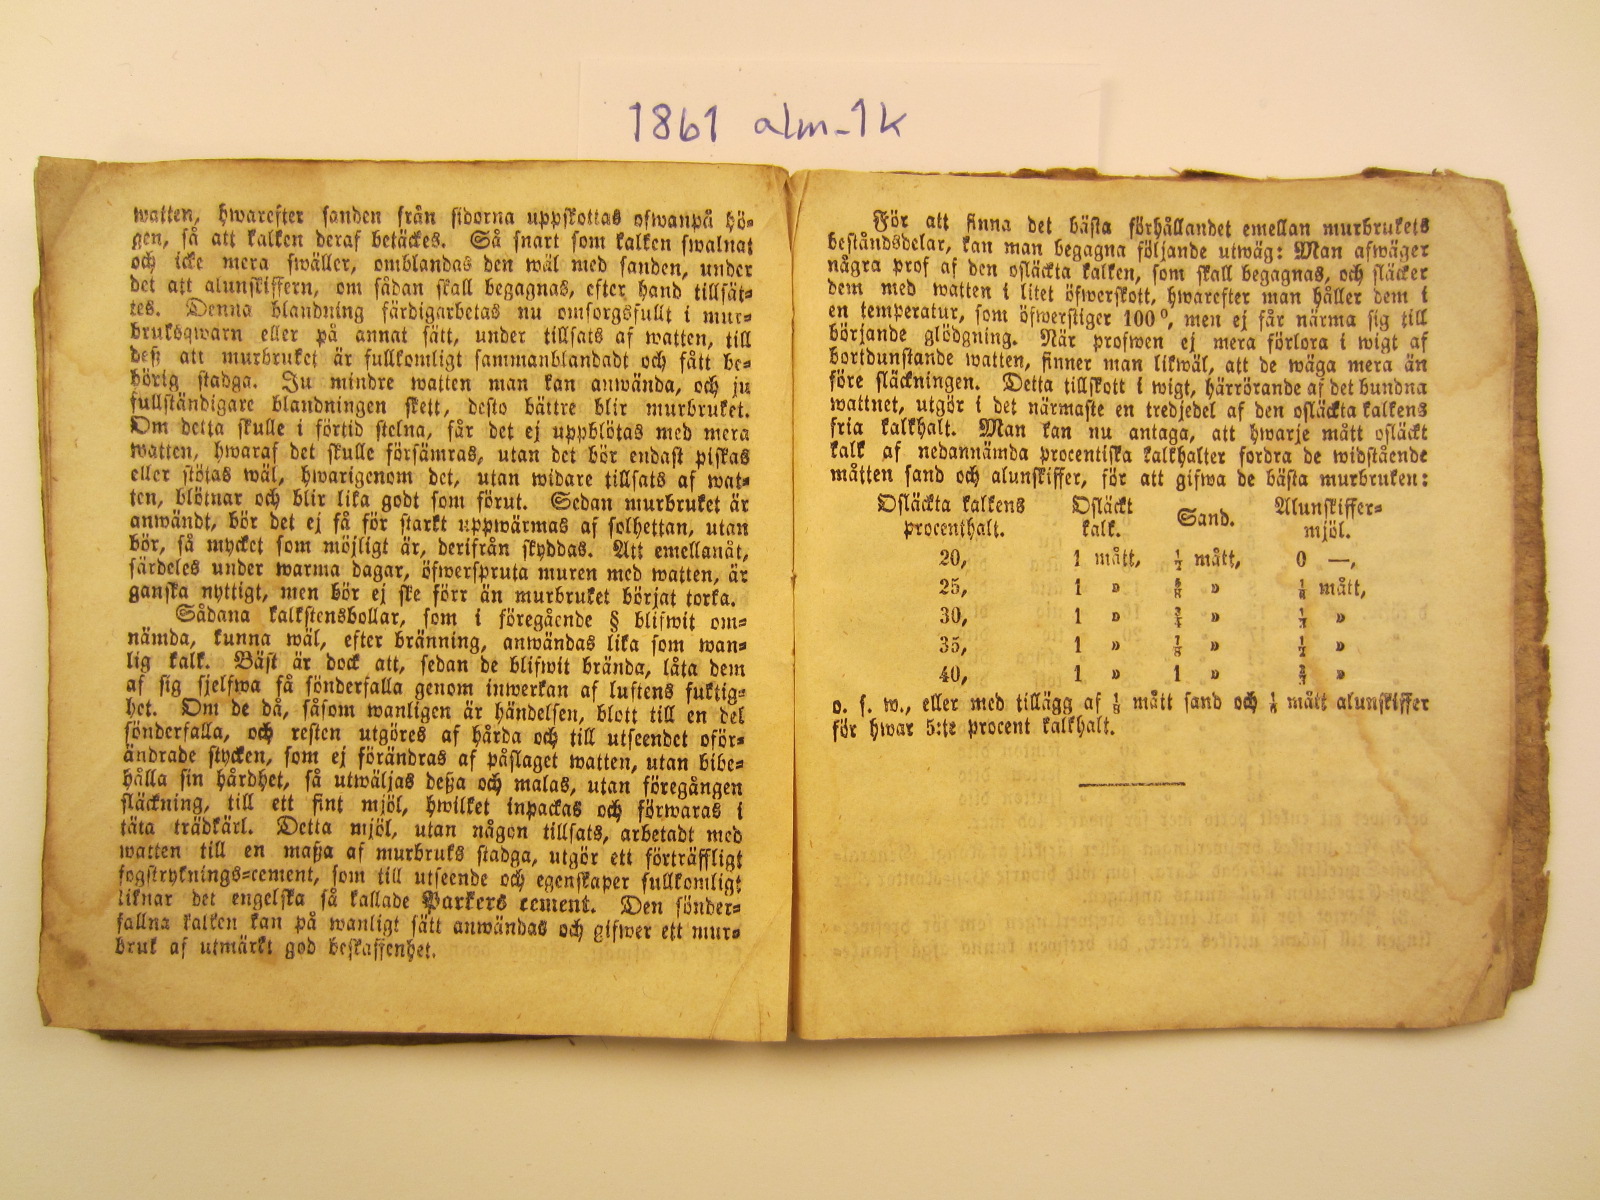 1861 alm-1k
watten, hwarefter sanden från sidorna uppskottas ofwanpå hö=
gen, så att kalken deraf betäckes. Så snart som kalken swalnat
och icke mera swäller, omblandas den wäl med sanden, under
det att alunskiffern, om sådan skall begagnas, efter hand tillsät=
tes. Denna blandning färdigarbetas nu omsorgsfullt i mur=
bruksqwarn eller på annat sätt, under tillsats af watten, till
deß att murbruket är fullkomligt sammanblandadt och fått be=
hörig stadga. Ju mindre watten man kan använda, och ju
fullständigare blandningen skett, desto bättre blir murbruket.
Om detta skulle i förtid stelna, får det ej uppblötas med mera
watten, hwaraf det skulle försämras, utan det bör endast piskas
eller stötas wäl, hwarigenom det, utan widare tillsats af wat=
ten, blötnar och blir lika godt som förut. Sedan murbruket är
anwändt, bör det ej få för starkt uppwärmas af solhettan, utan
bör, så mycket som möjligt är, derifrån skyddas. Att emellanåt,
särdeles under warma dagar, öfwerspruta muren med watten, är
ganska nyttigt, men bör ej ske förr än murbruket börjat torka.
Sådana kalkstensbollar, som i föregående § blifwit om=
nämda, kunna wäl, efter bränning, anwändas lika som wan=
lig kalk. Bäst är dock att, sedan de blifwit brända, låta dem
af sig sjelfwa få sönderfalla genom inwerkan af luftens fuktig=
het. Om de då, såsom wanligen är händelsen, blott till en del
sönderfalla, och resten utgöres af hårda och till utseendet oför=
ändrade stycken, som ej förändras af påslaget watten, utan bibe=
hålla sin hårdhet, så utwäljas deßa och malas, utan föregången
släckning, till ett fint mjöl, hwilket inpackas och förwaras i
täta trädkärl. Detta mjöl, utan någon tillsats, arbetadt med
watten till en maßa af murbruks stadga, utgör ett förträffligt
fogstryknings=cement, som till utseende och egenskaper fullkomligt
liknar det engelska så kallade Parkers cement. Den sönder=
fallna kalken kan på wanligt sätt anwändas och gifwer ett mur=
bruk af utmärkt god beskaffenhet.
För att finna det bästa förhållandet emellan murbrukets
beståndsdelar, kan man begagna följande utwäg: Man afwäger
några prof af den osläckta kalken, som skall begagnas, och släcker
dem med watten i litet öfwerskott, hwarefter man håller dem i
en temperatur, som öfwerstiger 100°, men ej får närma sig till
börjande glödgning. När profwen ej mera förlora i wigt af
bortdunstande watten, finner man likwäl, att de wäga mera än
före släckningen. Detta tillskott i wigt, härrörande af det bundna
wattnet, utgör i det närmaste en tredjedel af den osläckta kalkens
fria kalkhalt. Man kan nu antaga, att hwarje mått osläckt
kalk af nedannämda procentiska kalkhalter fordra de widstående
måtten sand och alunskiffer, för att gifwa de bästa murbruken:
Osläckta kalkens Osläckt Sand. Alunskiffer=
procenthalt. kalk. mjöl.
20, 1 mått, ½ mått, 0 —,
25, 1 » ⅝ » ⅛ mått,
30, 1 » ¾ » ¼ »
35, 1 » ⅞ » ½ »
40, 1 » 1 » ¾ »
o. s. w., eller med tillägg af ⅛ mått sand och mått alunskiffer
för hwar 5:te procent kalkhalt.